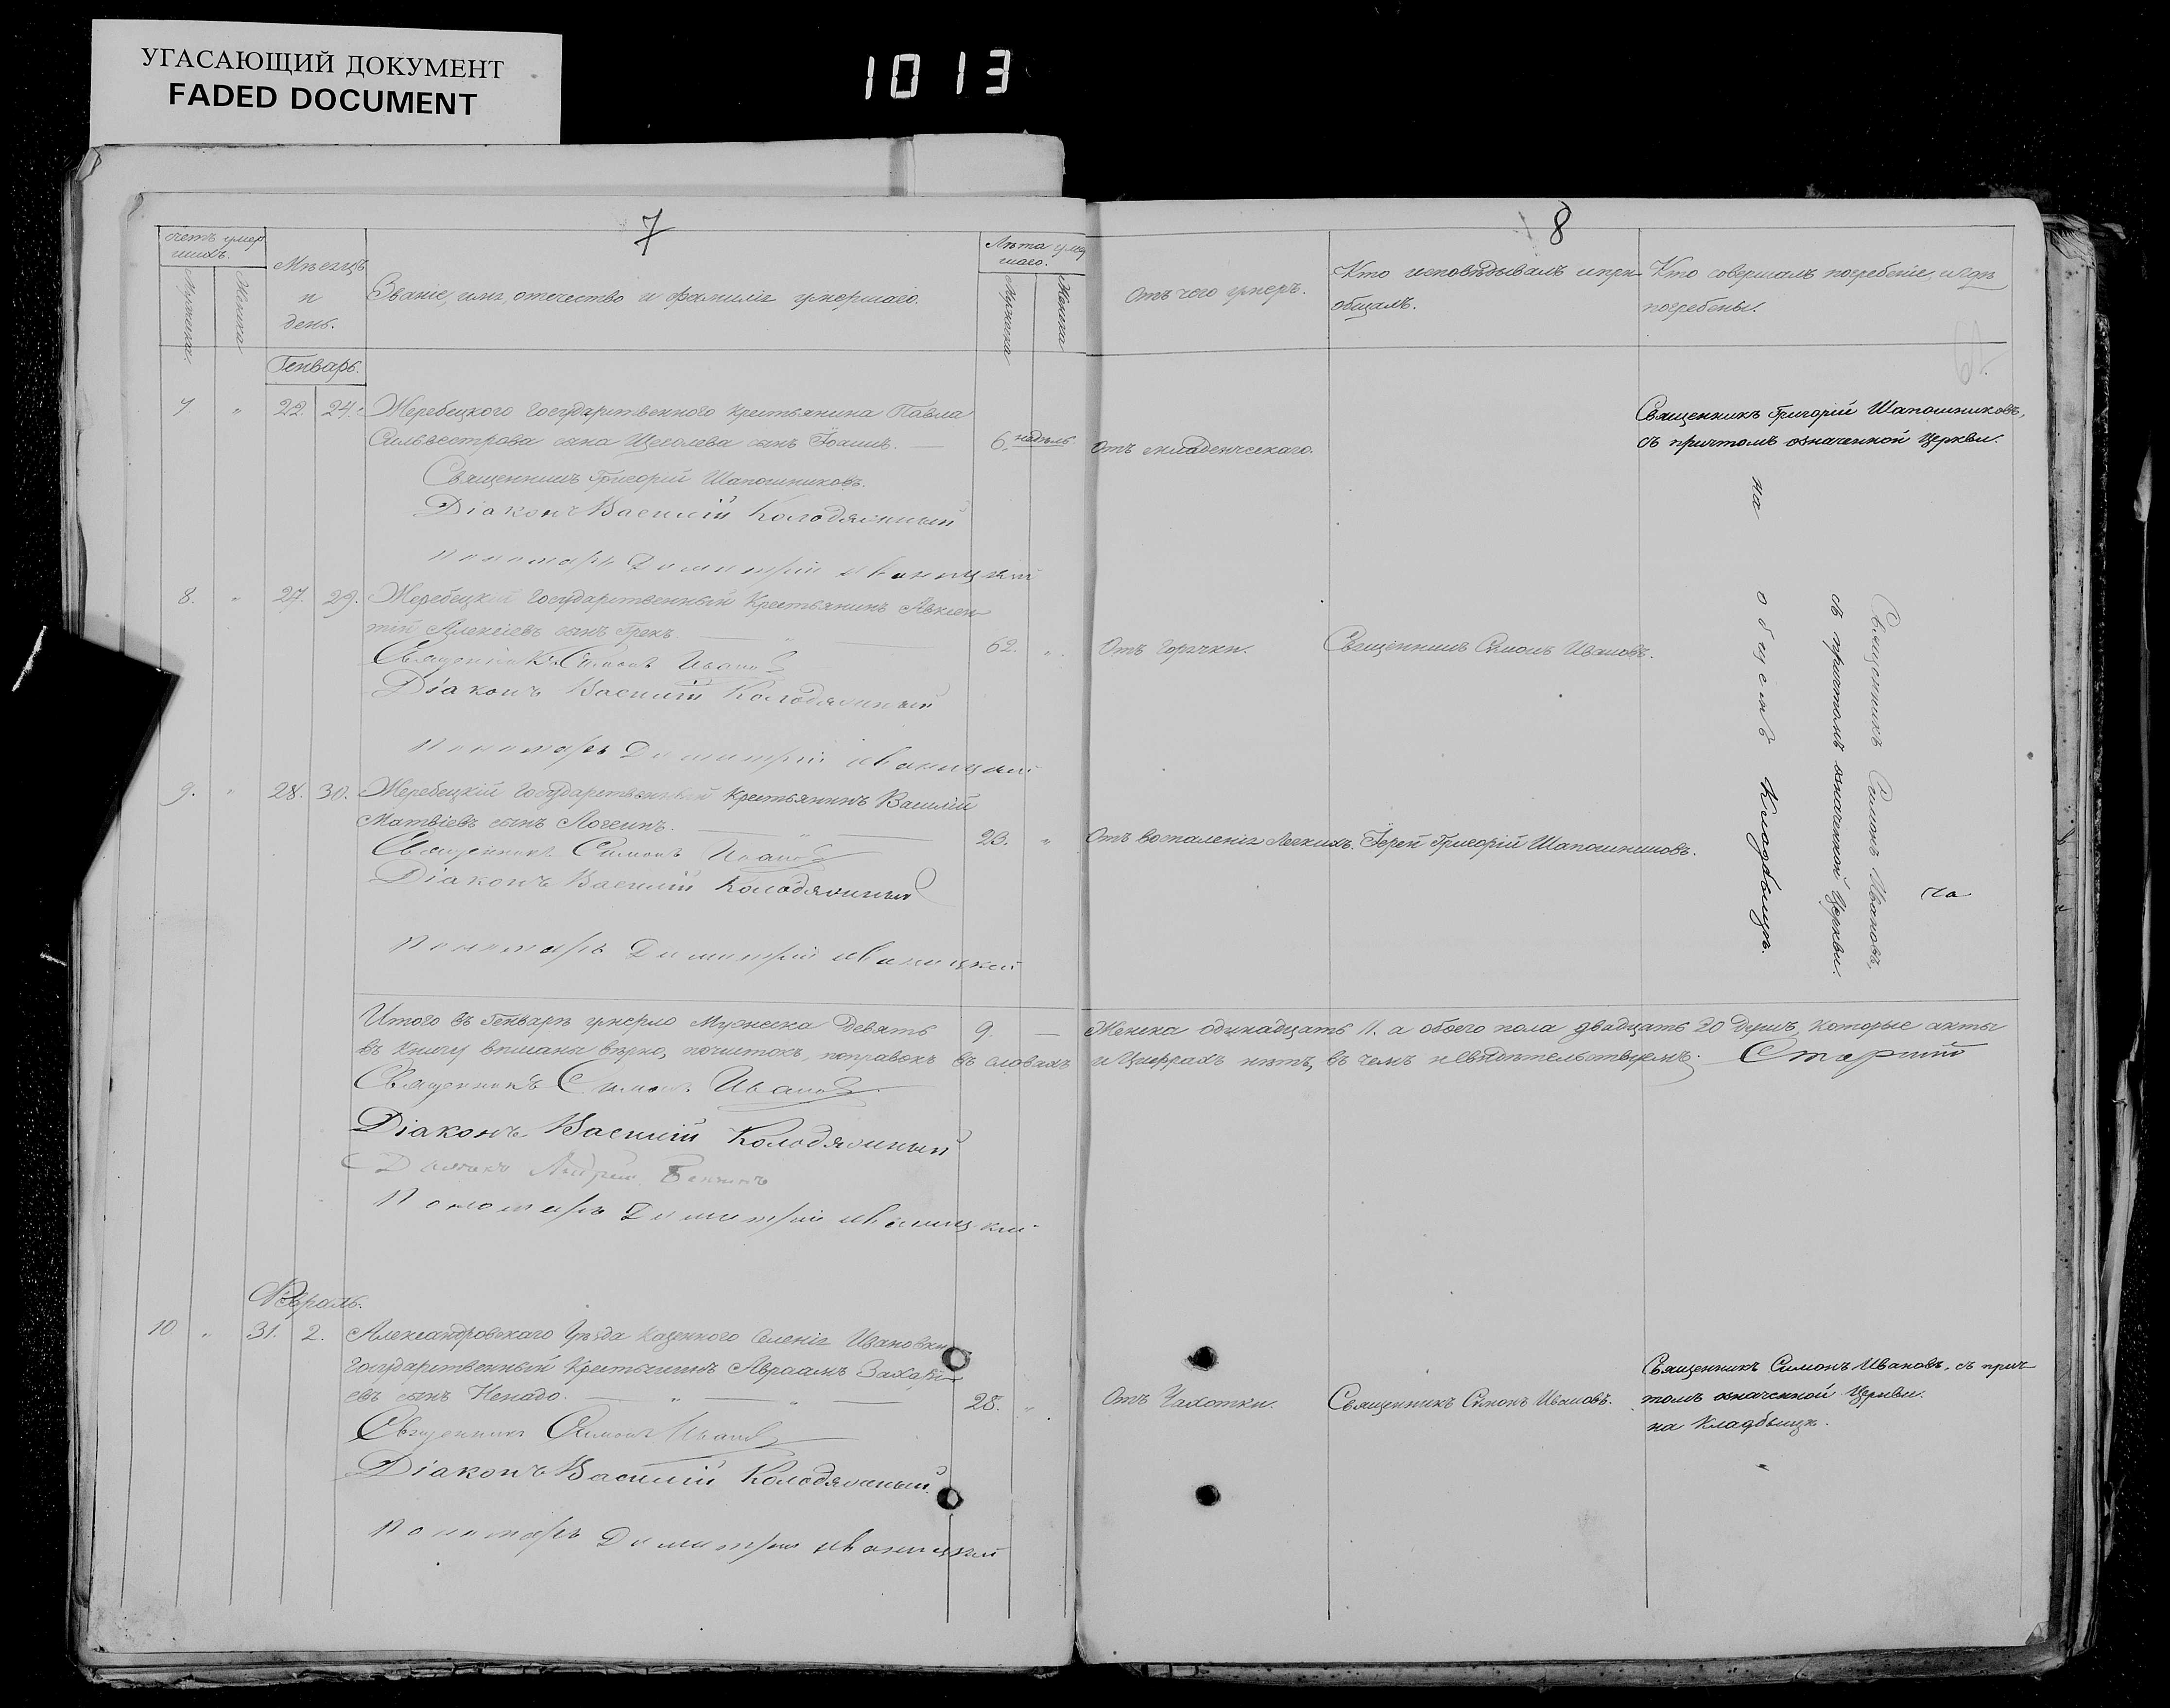 УГАСАЮЩИЙ ДОКУМЕНТ
FADED DOCUMENT
1013
7
8
Счетъ умер
шихъ.
Мужска.
Женска
Мѣсяцъ
и
день.
Званіе, имя, отечество и фамилія умершаго.
Лѣта умер
шаго.
Мужска
Женска
Отъ чего умеръ.
Кто исповѣдывалъ и при-
общалъ.
Кто совершалъ погребеніе и гдѣ
погребены.
Генварь.
7 " 22. 24. Жеребецкого Государственного крестьянина Павла
Сильвестрова сына Щеголева сынъ Іоаннъ.
6. недѣль
Отъ младенческаго.
Священникъ Григорій Шапошниковъ,
съ причтомъ означенной Церкви.
Священникъ Григорій Шапошниковъ.
Діаконъ Василій Колодяжный
Пономарь Димитрій Иваницкій
8. " 27. 29. Жеребецкій Государственный Крестьянинъ Авксен-
тій Алексіевъ сынъ Грекъ.
62. "
Отъ Горячки.
Священникъ Симонъ Ивановъ.
Священникъ Симонъ Ивановъ
Діаконъ Василій Колодяжный
Пономарь Димитрій Иваницкій
9. " 28. 30. Жеребецкій Государственный Крестьянинъ Василій
Матвіевъ сынъ
23. "
Отъ воспаленія Легкихъ.
Іерей Григорій Шапошниковъ.
Священникъ Симонъ Ивановъ
Діаконъ Василій Колодяжный
Пономарь Димитрій Иваницкій
Священникъ Симонъ Ивановъ,
съ причтомъ означенной Церкви.
на общемъ Кладбыщѣ.
на
Итого въ Генварѣ умерло Мужеска девять 9. — Женска одинадцать 11. а обоего пола двадцать 20 душъ, которые акты
въ Книгу вписаны вѣрно, почистокъ, поправокъ въ словахъ и Цыфрахъ нѣтъ, въ чемъ и свидѣтельствуемъ:
Священникъ Симонъ Ивановъ
Діаконъ Василій Колодяжный
Андрей
Пономарь Димитрій Иваницкій
Февраль.
10 " 31. 2. Александровскаго Уѣзда Казенного Селенія Ивановки
Государственный Крестьянинъ Авраамъ Захарі-
евъ сынъ Ненадо.
28. "
Отъ Чахотки.
Священникъ Симонъ Ивановъ.
Священникъ Симонъ Ивановъ, съ прич-
томъ означенной Церкви.
на Кладбыщѣ.
Священникъ Симонъ Ивановъ
Діаконъ Василій Колодяжный.
Пономарь Димитрій Иваницкій